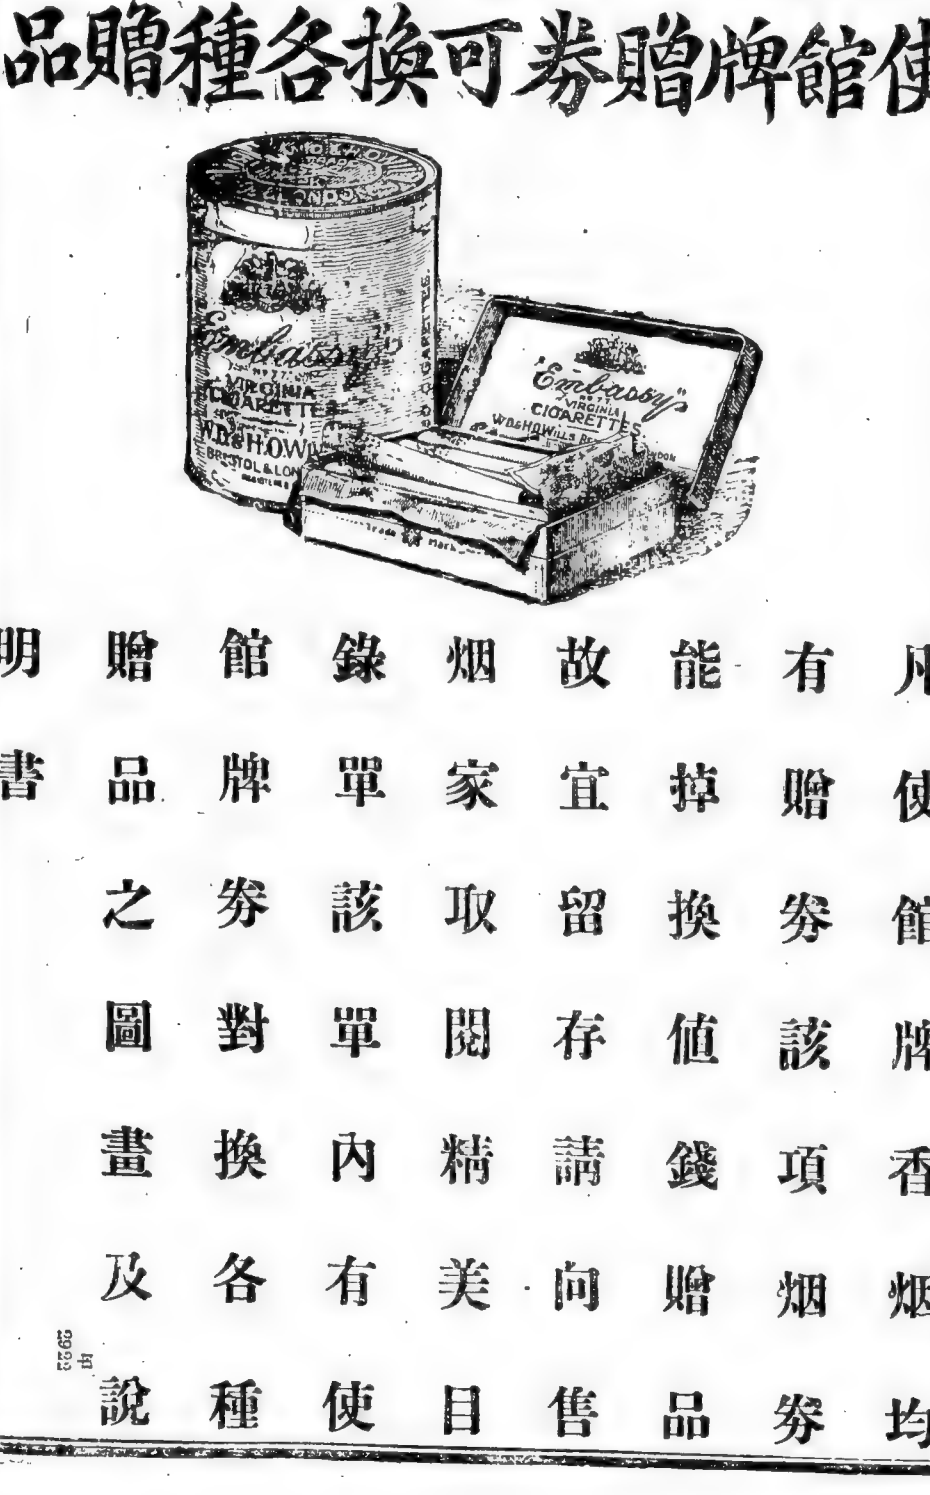 使館牌贈券可換各種贈品
Embassy
VIRGINIA
CIGARETTES
W.D.&H.O.WILLS
BRISTOL & LONDON
CIGARETTES
"Embassy"
Nº 77
VIRGINIA
CIGARETTES
W.D.&H.O.WILLS
Trade Mark
凡使館牌香烟均
有贈券該項烟券
能掉換值錢贈品
故宜留存請向售
烟家取閱精美目
錄單該單內有使
館牌券對換各種
贈品之圖畫及說
明書
印
2922